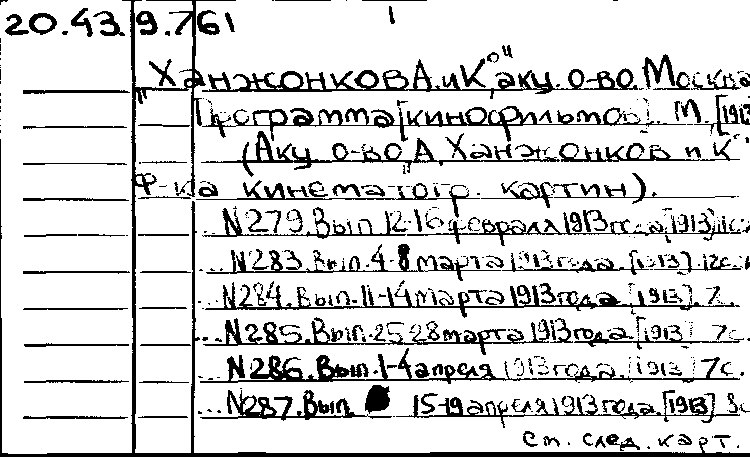 20.43.9.761
„Ханжонков А. и К°", акц. о-во. Москва
Программа [кинофильмов]. М., [1913
(Акц. о-во „А. Ханжонков и К°"
Ф-ка кинематогр. картин).
...N279. Вып. 12-16 февраля 1913 года. [1913] 11с.
...N283. Вып. 4-8 марта 1913 года. [1913]. 12с.
...N284. Вып. 11-14 марта 1913 года. [1913]. 7.
...N285. Вып. 25 28 марта 1913 года. [1913] 7с.
...N286. Вып. 1-4 апреля 1913 года. [1913] 7с.
...N287. Вып. 15-19 апреля 1913 года. [1913] 8с
см. след. карт.